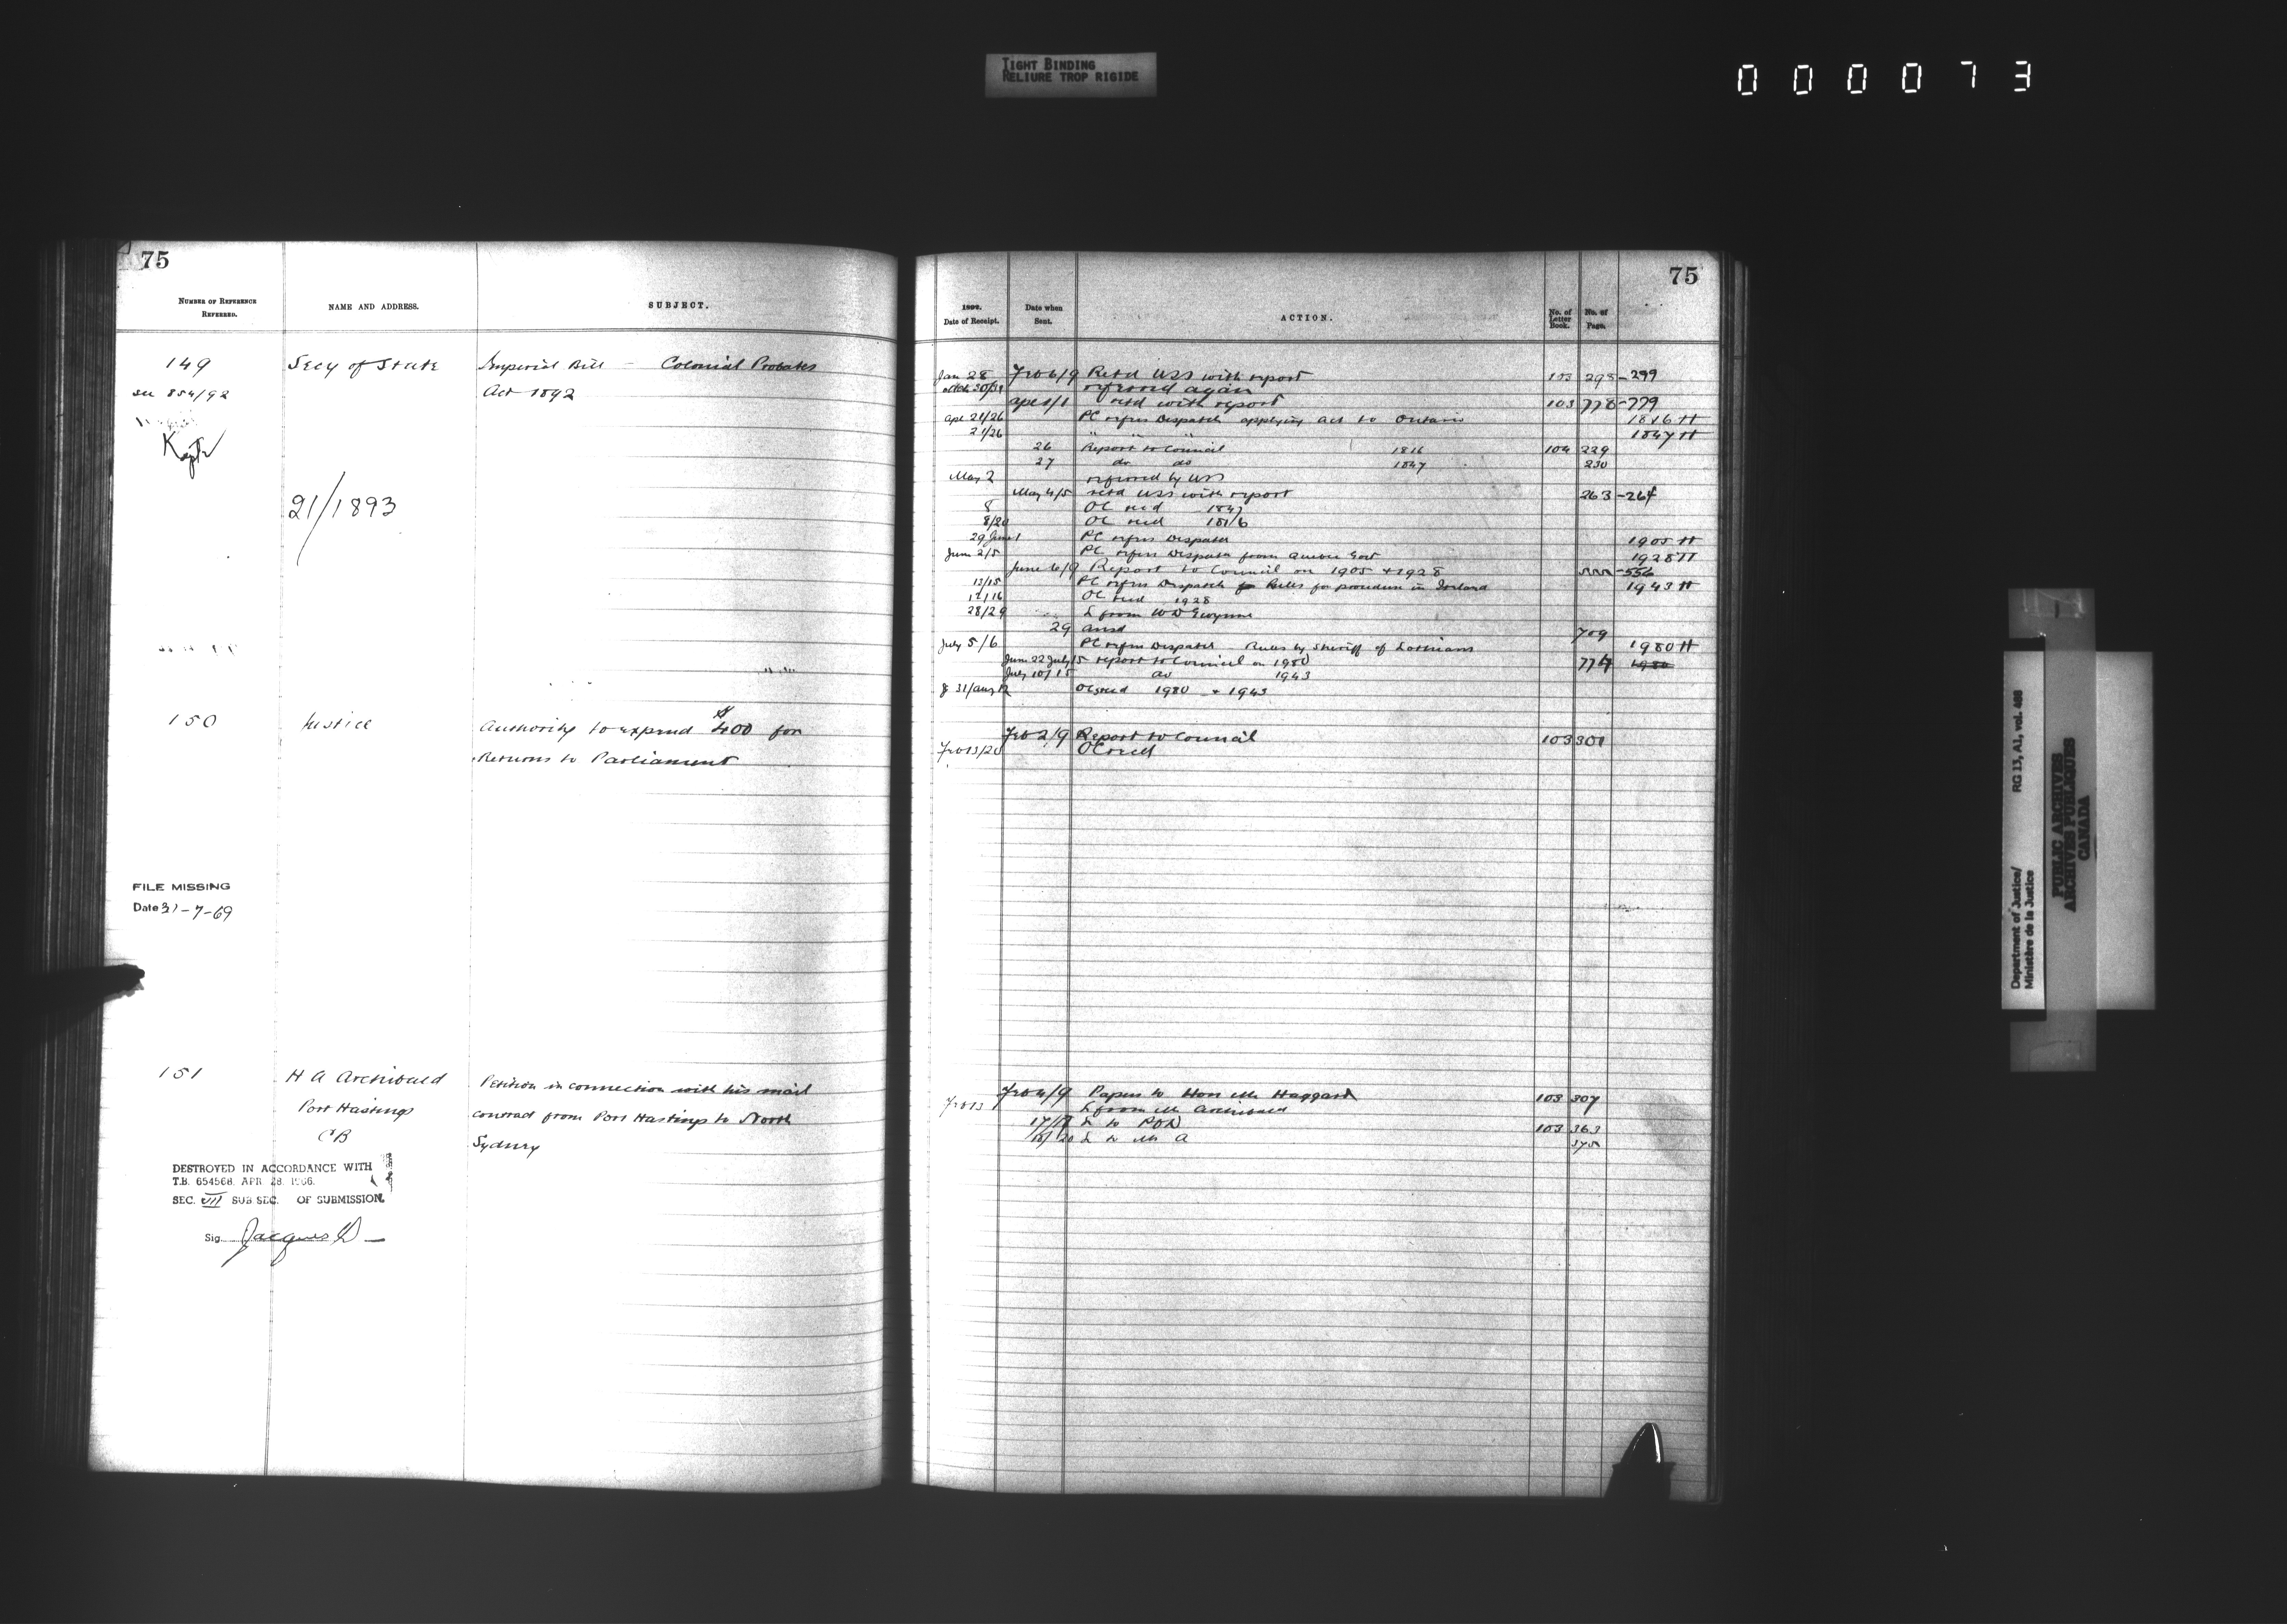 TIGHT BINDING
RELIURE TROP RIGIDE
000073
75
NUMBER OF REFERENCE REFERRED.
NAME AND ADDRESS.
SUBJECT.
149 Secy of State Imperial Bill - Colonial Probates
see 854/92 Act 1892
Kept
21/1893
150 Justice Authority to expend $400 for
Returns to Parliament
FILE MISSING
Date 31-7-69
151 H A Archibald Petition in connection with his mail
Port Hastings contract from Port Hastings to North
CB Sydney
DESTROYED IN ACCORDANCE WITH
T.B. 654568, APR. 28, 1966.
SEC. VII SUB SEC. OF SUBMISSION.
Sig. Jacques
75
1892.
Date of Receipt.
Date when Sent.
ACTION.
No. of Letter Book.
No. of Page.
Jan 28 Feb 6/9 Retd USS with report 103 298-299
referred again
Apl 1/1 retd with report 103 778-779
Apl 21/26 PC refers Dispatch applying act to Ontario 1816 H
21/26 " " " 1847 H
26 Report to Council 1816 104 229
27 do do 1847 230
May 2 referred by USS
May 4/5 retd USS with report 263-264
8 OC recd 1847
8/20 OC recd 1816
29 June 1 PC refers Dispatch 1905 H
June 2/5 PC refers Dispatch from Quebec Govt 1928 H
June 6/9 Report to Council on 1905 + 1928 555-556
13/15 PC refers Dispatch Rules for procedure in Ireland 1943 H
OC recd 1928
28/29 L from W D Gwynne
29 ansd 709
July 5/6 PC refers Dispatch - Rules by Sheriff of Lothians 1980 H
June 22 July 5 report to Council on 1980 774 1980
July 10/15 do 1943
31/Aug 12 OCs recd 1980 + 1943
Feb 2/9 Report to Council 103 301
Feb 13/20 OC recd
Feb 4/9 Papers to Hon Mr Haggart 103 307
Feb 13 L from Mr Archibald
17/18 L to POD 103 363
20 L to Mr A 375
Department of Justice/ RG 13, A1, vol. 486
Ministère de la Justice
PUBLIC ARCHIVES
ARCHIVES PUBLIQUES
CANADA